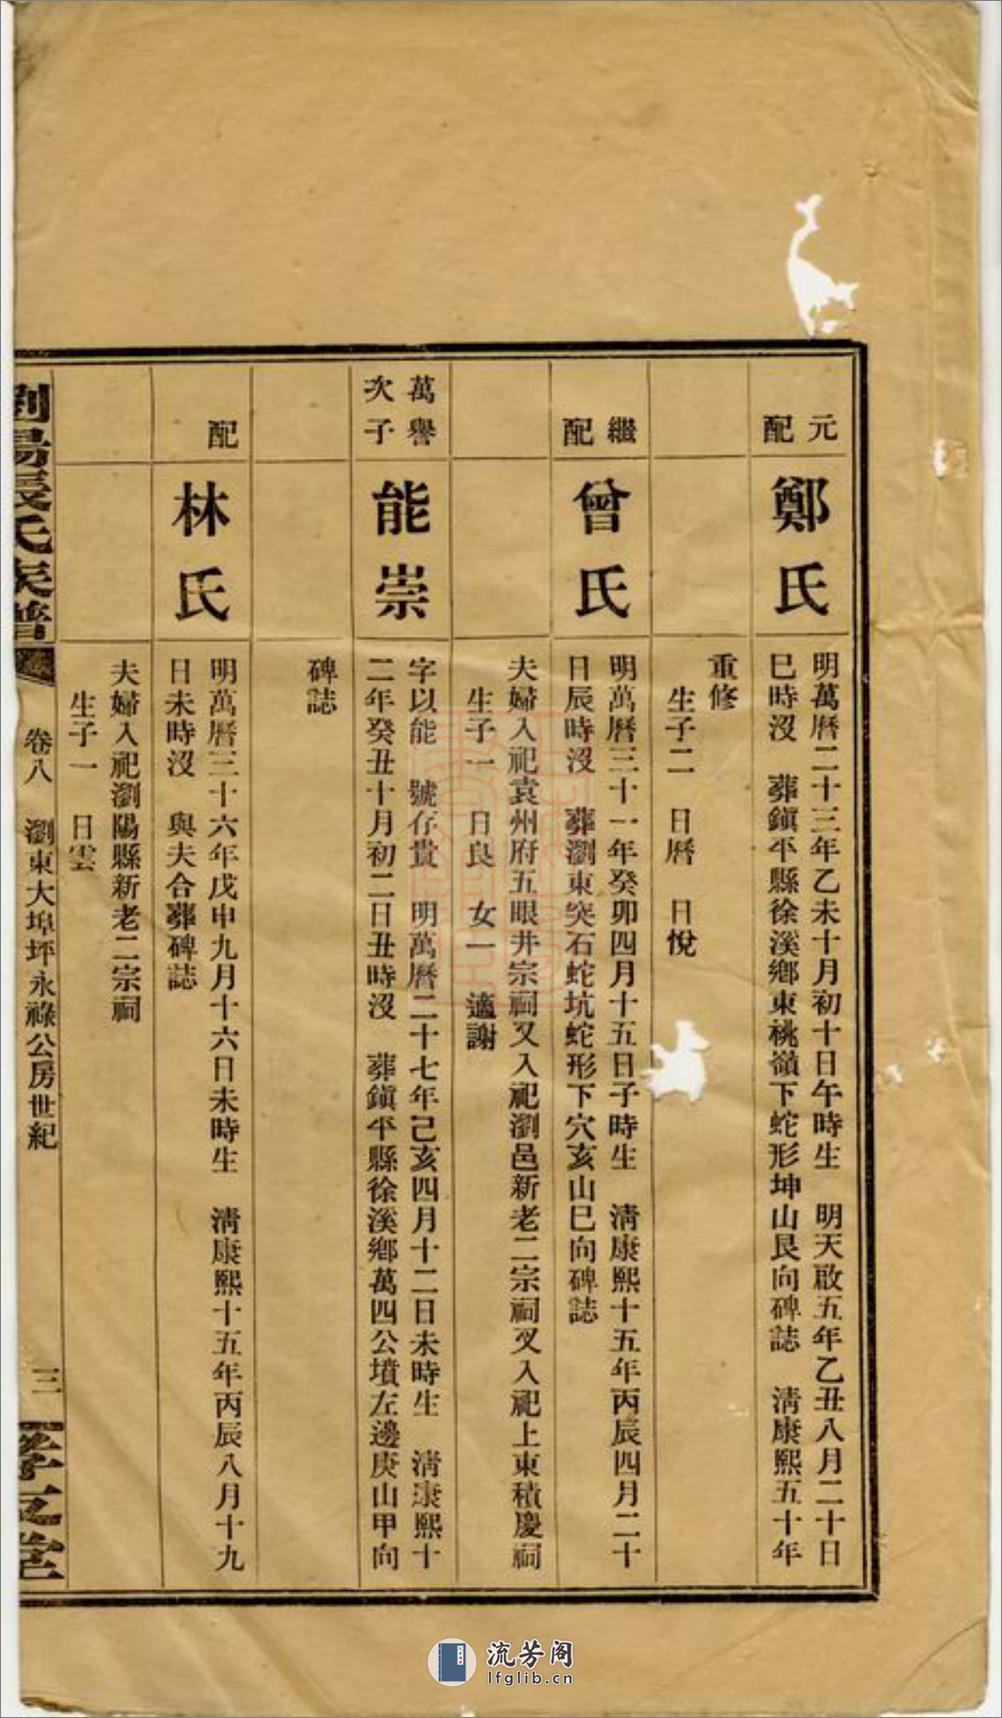 元配
鄭氏
明萬曆二十三年乙未十月初十日午時生　明天啟五年乙丑八月二十日
巳時沒　葬鎭平縣徐溪鄉東桃嶺下蛇形坤山艮向碑誌　淸康熙五十年
重修
生子二　日曆　日悅
繼配
曾氏
明萬曆三十一年癸卯四月十五日子時生　淸康熙十五年丙辰四月二十
日辰時沒　葬瀏東突石蛇坑蛇形下穴亥山巳向碑誌
夫婦入祀袁州府五眼井宗祠又入祀瀏邑新老二宗祠又入祀上東積慶祠
生子一　日良　女一　適謝
萬譽次子
能崇
字以能　號存貴　明萬曆二十七年己亥四月十二日未時生　淸康熙十
二年癸丑十月初二日丑時沒　葬鎭平縣徐溪鄉萬四公墳左邊庚山甲向
碑誌
配
林氏
明萬曆三十六年戊申九月十六日未時生　淸康熙十五年丙辰八月十九
日未時沒　與夫合葬碑誌
夫婦入祀瀏陽縣新老二宗祠
生子一　日雲
瀏陽張氏族譜
卷八　瀏東大埠坪永祿公房世紀
三
孝友堂
流芳阁
lfglib.cn